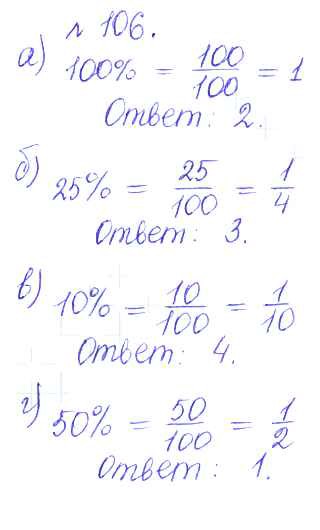 № 106.
а) 100% = 100/100 = 1
Ответ: 2.
б) 25% = 25/100 = 1/4
Ответ: 3.
в) 10% = 10/100 = 1/10
Ответ: 4.
г) 50% = 50/100 = 1/2
Ответ: 1.